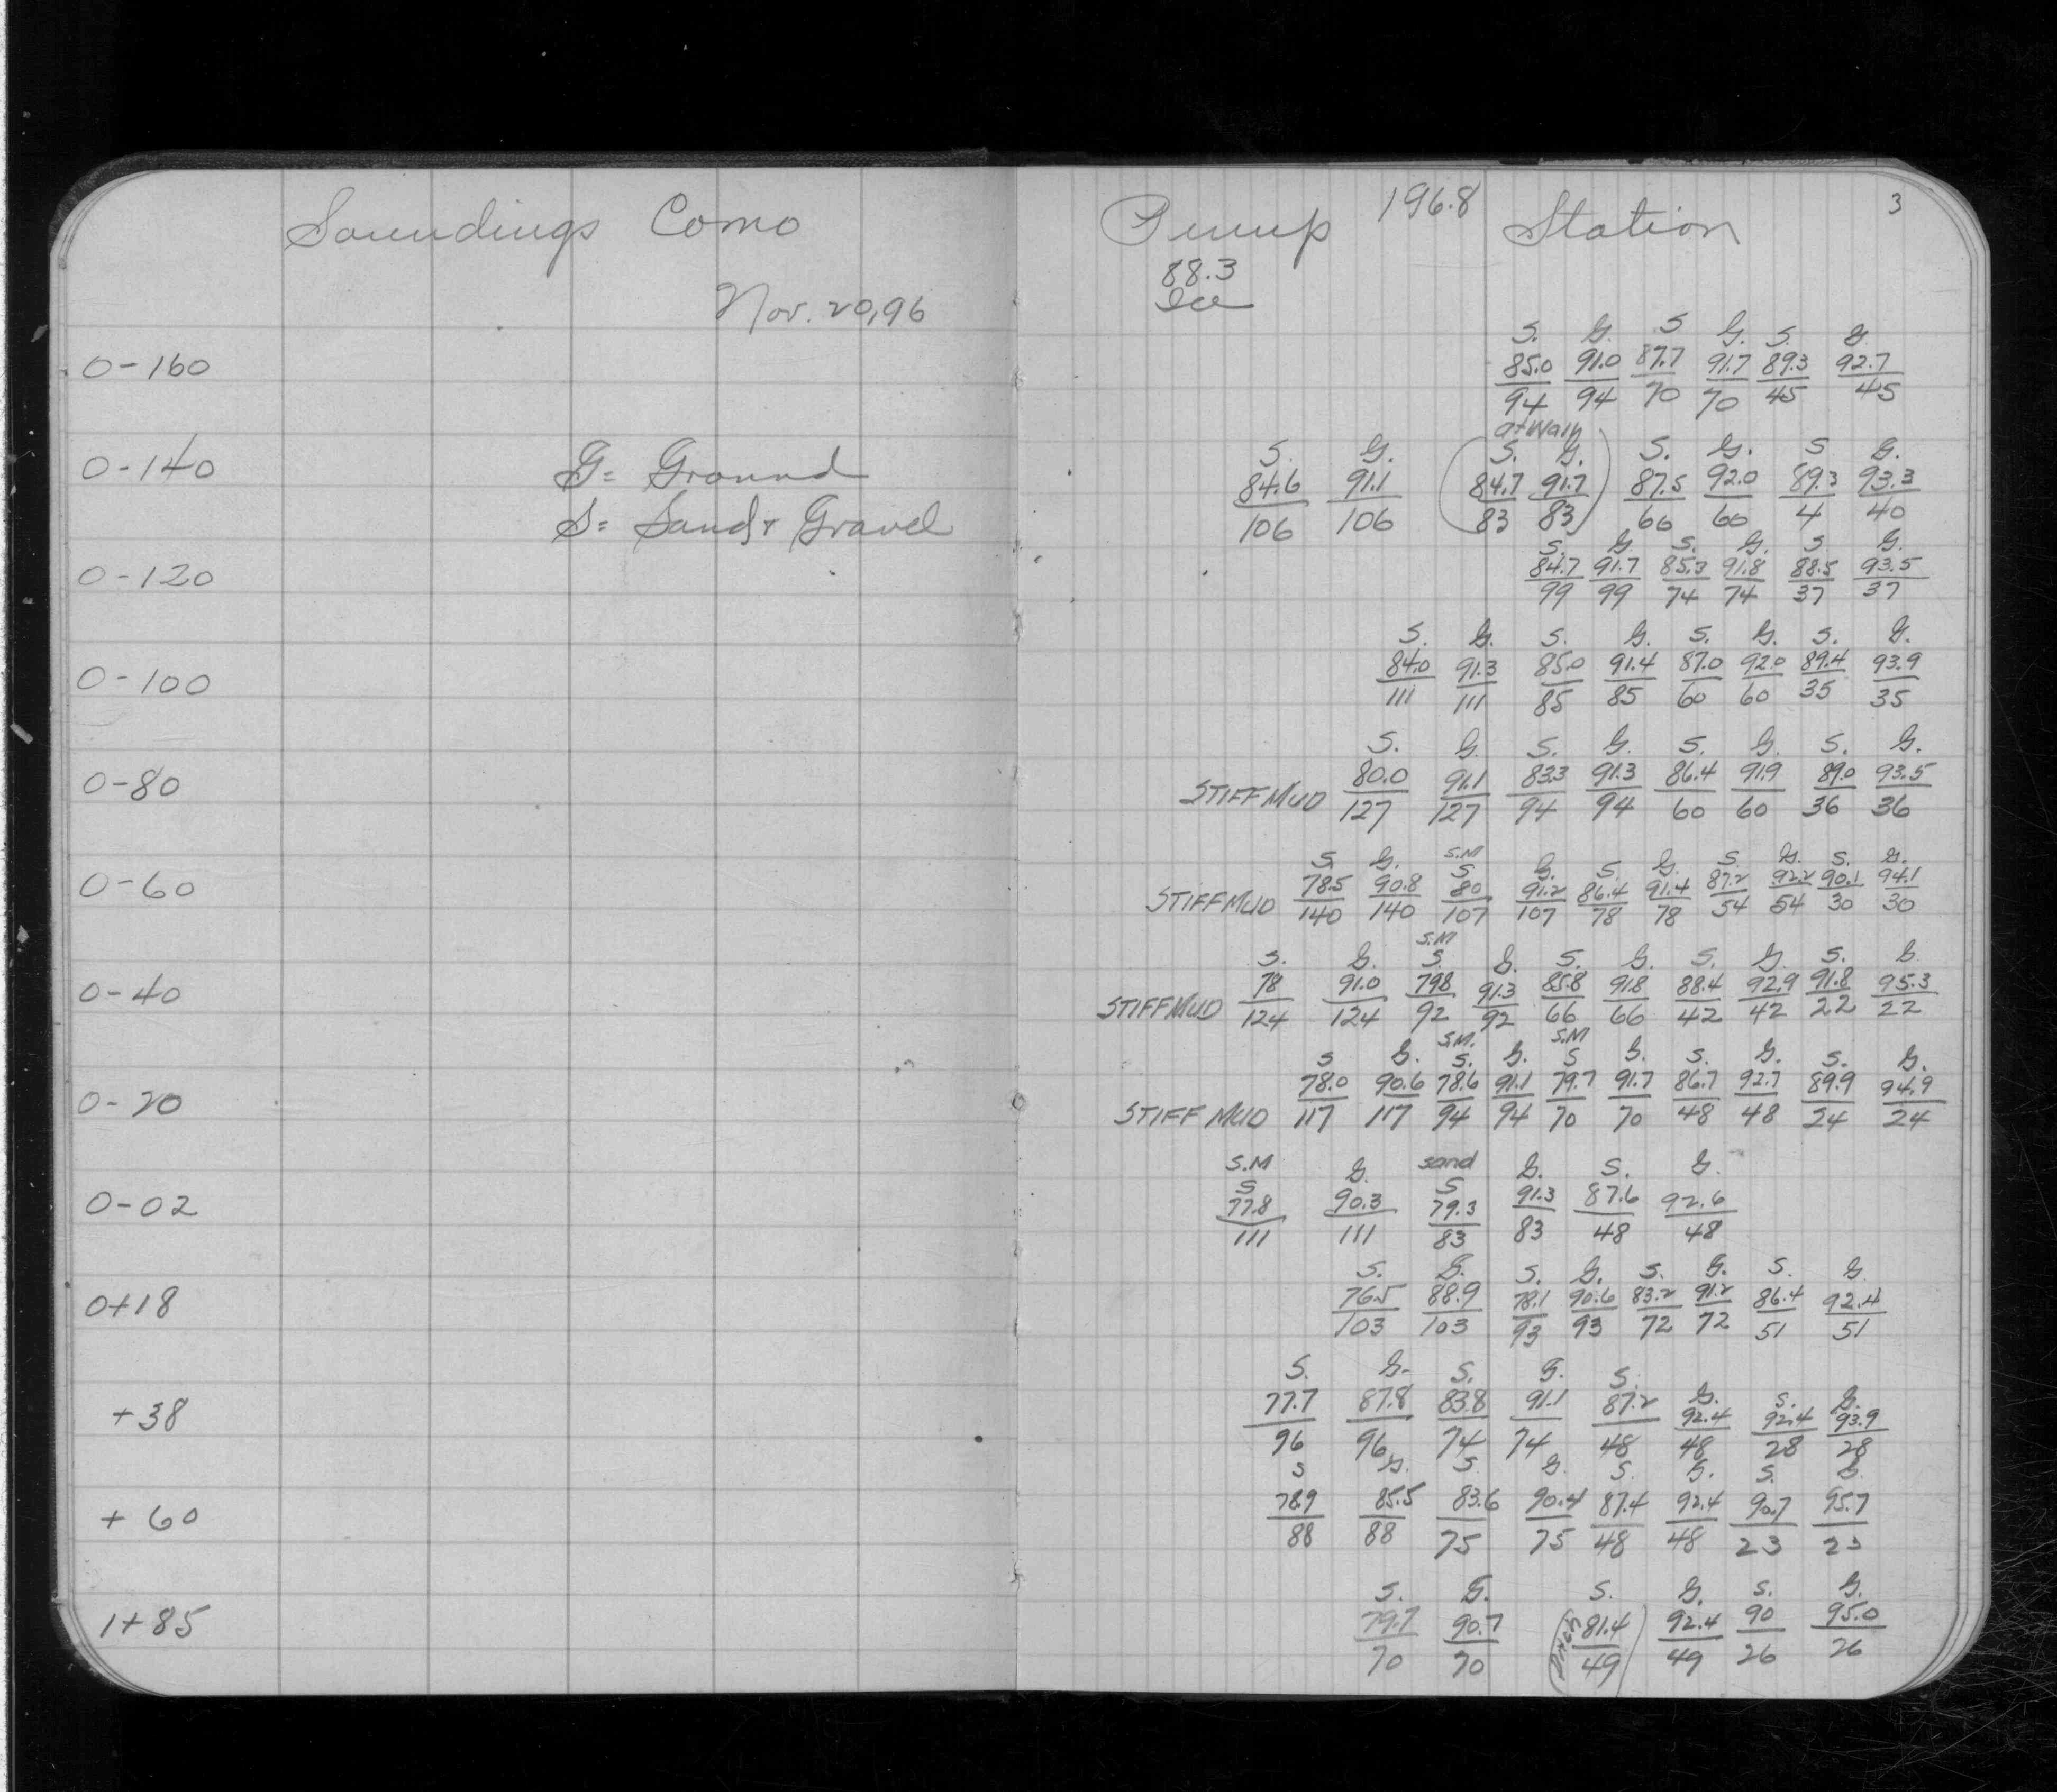 Soundings Como Pump 196.8 Station 3
88.3
Ice
Nov. 20,96
S. G. S G. S. G.
0-160 85.0 91.0 87.7 91.7 89.3 92.7
94 94 70 70 45 45
at Wall
S. G. S. G. S. G. S G.
0-140 G= Ground 84.6 91.1 (84.7 91.7) 87.5 92.0 89.3 93.3
S= Sand & Gravel 106 106 83 83 60 4 40
S. G. S. G. S G.
0-120 84.7 91.7 85.3 91.8 88.5 93.5
99 99 74 74 37 37
S. G. S. G. S. G. S. G.
0-100 84.0 91.3 85.0 91.4 87.0 92.0 89.4 93.9
111 111 85 85 60 60 35 35
S. G. S. G. S. G. S. G.
0-80 80.0 91.1 83.3 91.3 86.4 91.9 89.0 93.5
STIFF MUD 127 127 94 94 60 60 36 36
S.M
S G. S G. S. G. S. G. S. G.
0-60 78.5 90.8 80 91.2 86.4 91.4 87.2 92.2 90.1 94.1
STIFF MUD 140 140 107 107 78 78 54 54 30 30
S.M
S. G. S. G. S. G. S. G. S. G
0-40 78 91.0 79.8 91.3 85.8 91.8 88.4 92.9 91.8 95.3
STIFF MUD 124 124 92 92 66 66 42 42 22 22
S.M. S.M
S G. S. G. S G. S. G. S. G.
0-20 78.0 90.6 78.6 91.1 79.7 91.7 86.7 92.7 89.9 94.9
STIFF MUD 117 117 94 94 70 70 48 48 24 24
S.M sand
S G. S G. S. G.
0-02 77.8 90.3 79.3 91.3 87.6 92.6
111 111 83 83 48 48
S. G. S. G. S. G. S. G
0+18 76.5 88.9 78.1 90.6 83.2 91.2 86.4 92.4
103 103 93 93 72 72 51 51
S. G. S. G. S. G. S. G.
+38 77.7 87.8 83.8 91.1 87.2 92.4 92.4 93.9
96 96 74 74 48 48 28 28
S G. S G. S. G. S. G.
+60 78.9 85.5 83.6 90.4 87.4 92.4 90.7 95.7
88 88 75 75 48 48 23 23
S. G. S. G. S. G.
1+85 79.7 90.7 (81.4) 92.4 90 95.0
70 70 49 49 26 26